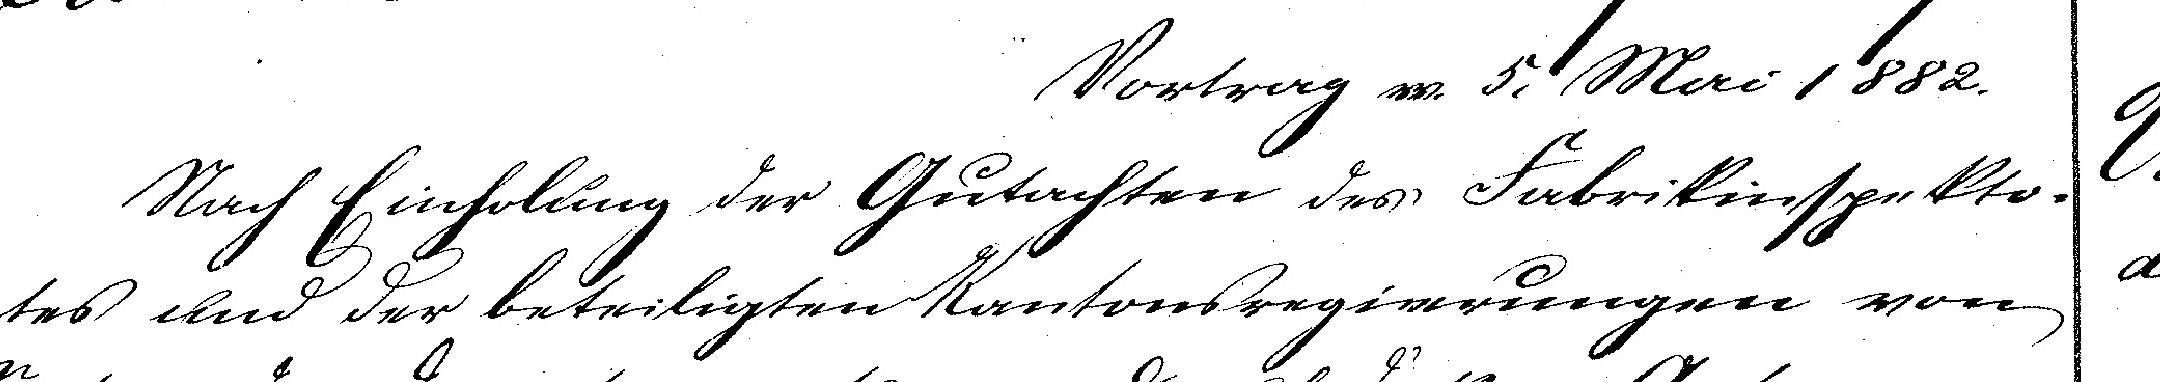 Vortrag v. 5. Mai 1882.
Nach Einholung der Gutachten des Fabrikinspekto-
tes und der beteiligten Kantonsregierungen von